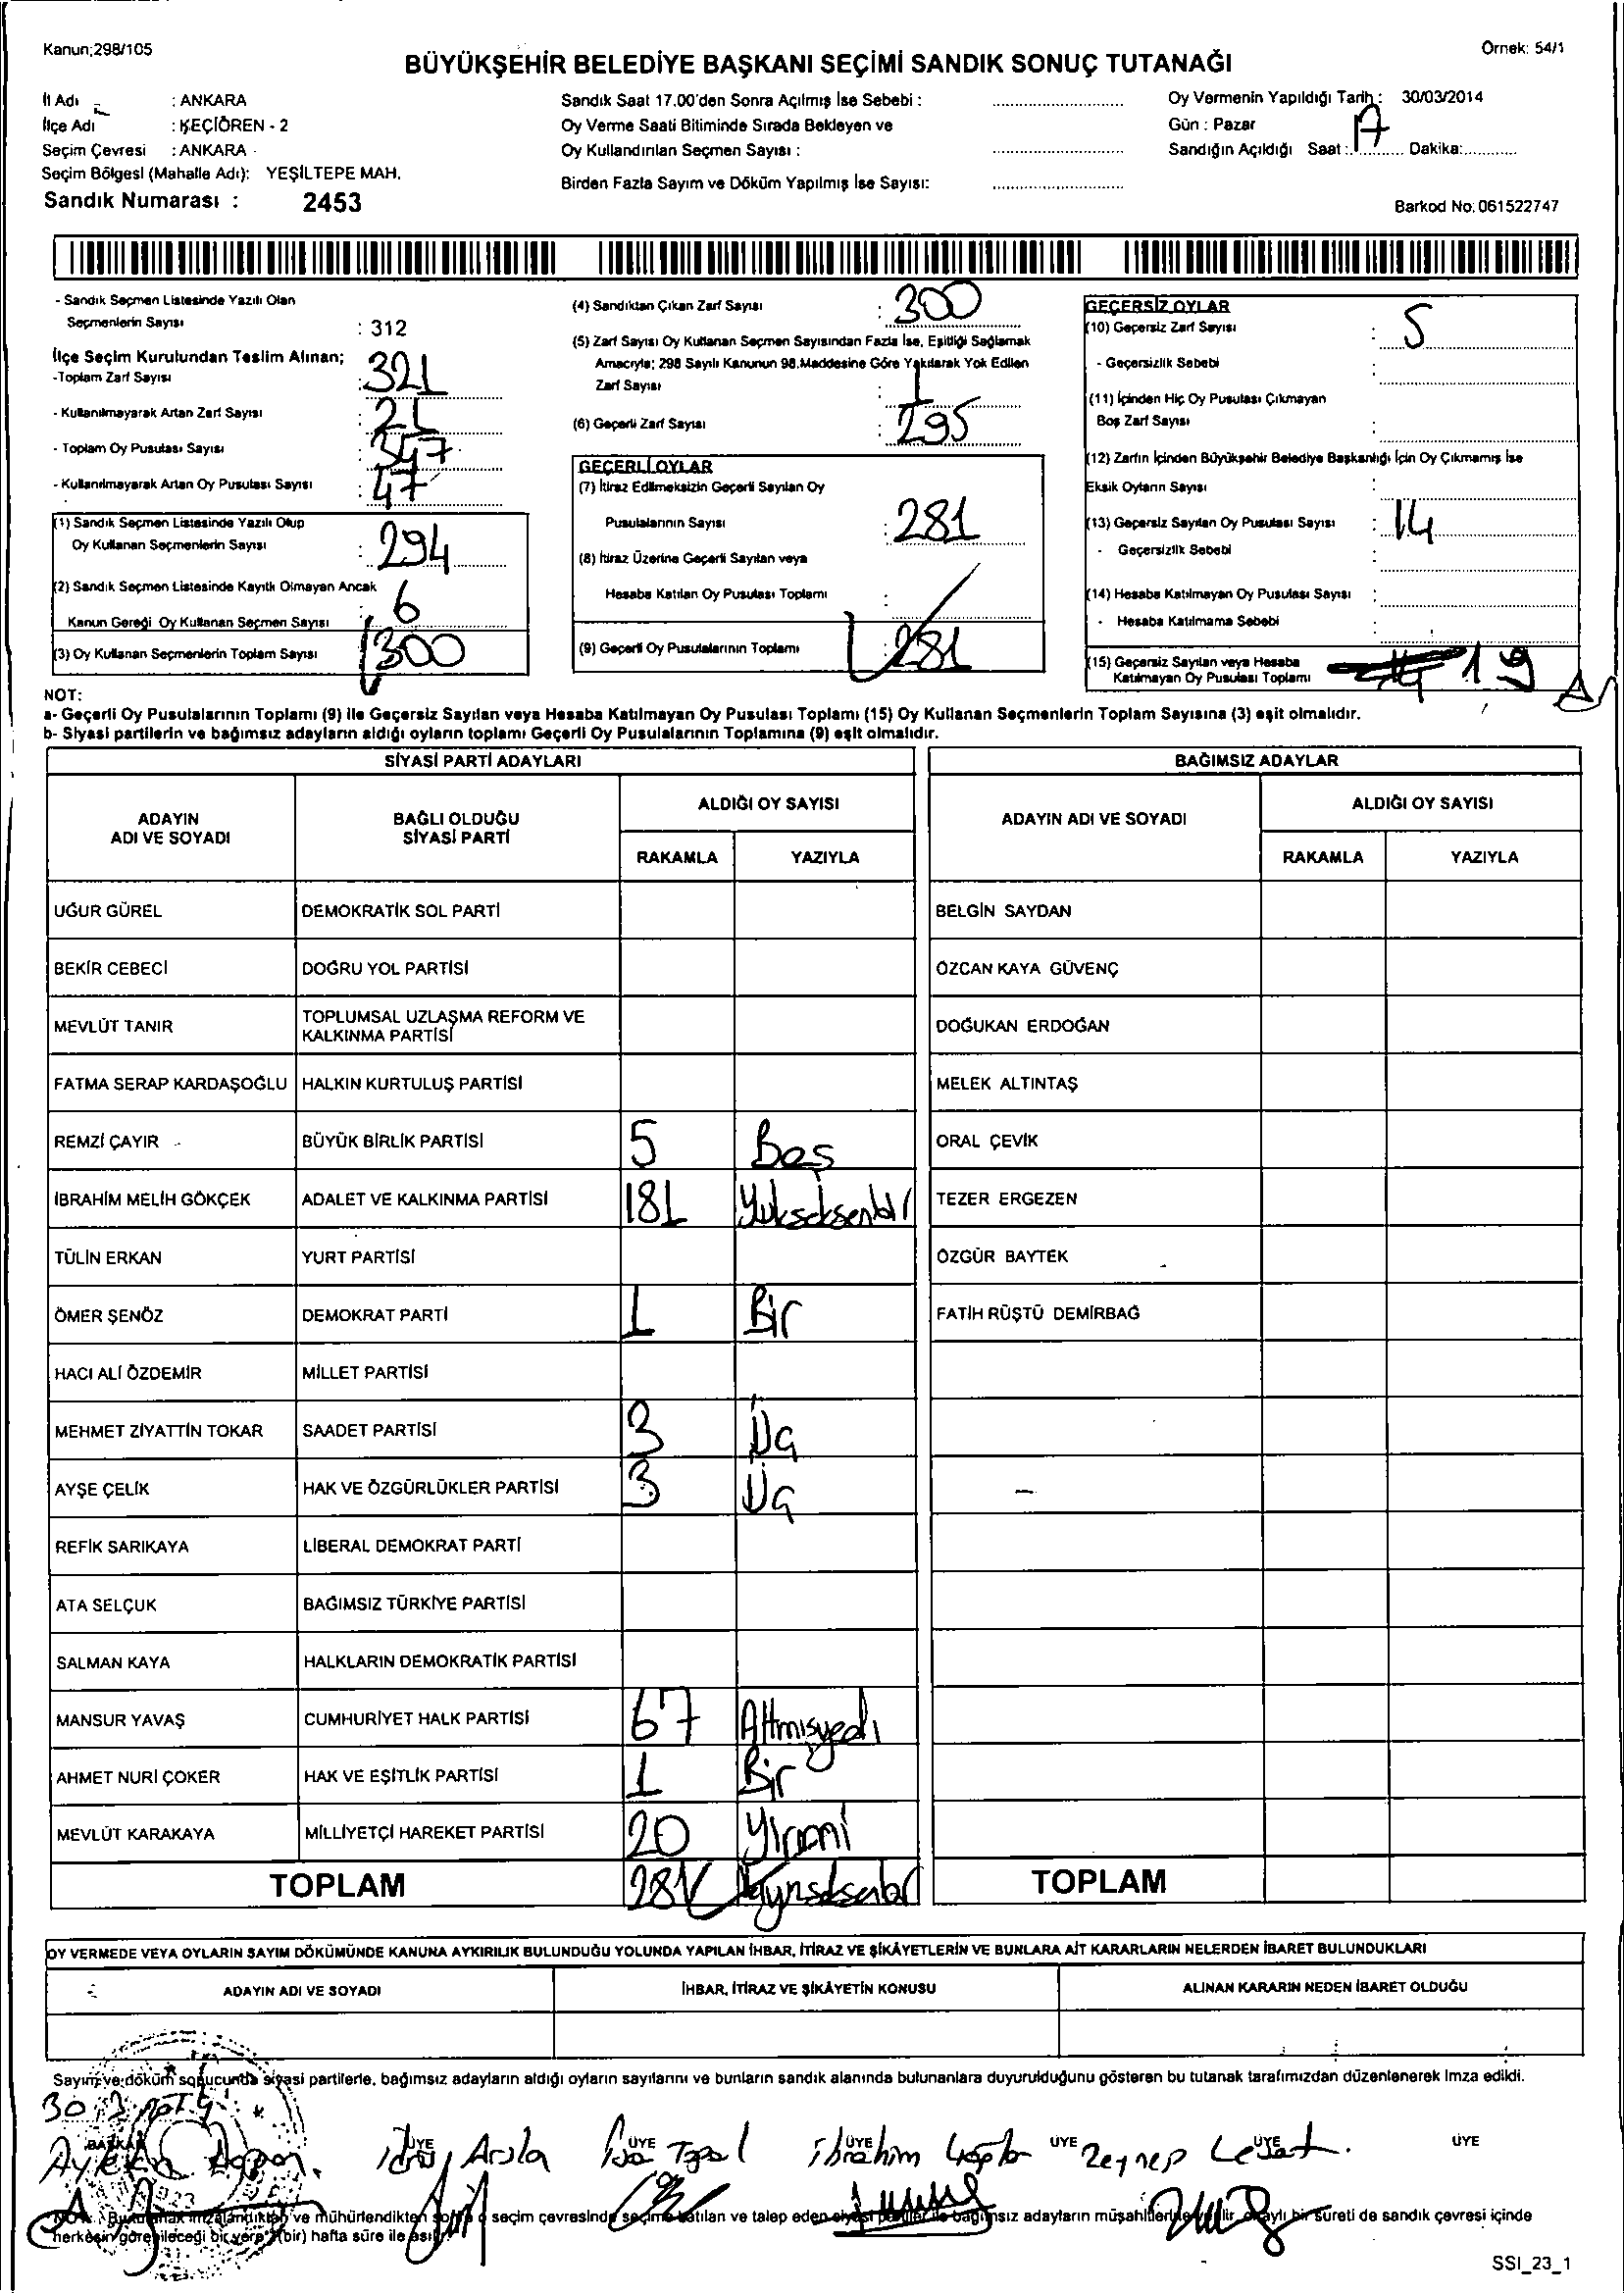 Kanun;298/105
Örnek: 54/1
BÜYÜKŞEHİR BELEDİYE BAŞKANI SEÇİMİ SANDIK SONUÇ TUTANAĞI
İl Adı : ANKARA
İlçe Adı : KEÇİÖREN - 2
Seçim Çevresi : ANKARA
Seçim Bölgesi (Mahalle Adı): YEŞİLTEPE MAH.
Sandık Numarası : 2453
Sandık Saat 17.00'den Sonra Açılmış İse Sebebi :
Oy Verme Saati Bitiminde Sırada Bekleyen ve
Oy Kullandırılan Seçmen Sayısı :
Birden Fazla Sayım ve Döküm Yapılmış İse Sayısı:
Oy Vermenin Yapıldığı Tarih : 30/03/2014
Gün : Pazar
Sandığın Açıldığı Saat : 17 Dakika:
Barkod No: 061522747
- Sandık Seçmen Listesinde Yazılı Olan
Seçmenlerin Sayısı : 312
İlçe Seçim Kurulundan Teslim Alınan;
-Toplam Zarf Sayısı : 321
- Kullanılmayarak Artan Zarf Sayısı : 21
- Toplam Oy Pusulası Sayısı : 347
- Kullanılmayarak Artan Oy Pusulası Sayısı : 47
(1) Sandık Seçmen Listesinde Yazılı Olup
Oy Kullanan Seçmenlerin Sayısı : 294
(2) Sandık Seçmen Listesinde Kayıtlı Olmayan Ancak
Kanun Gereği Oy Kullanan Seçmen Sayısı : 6
(3) Oy Kullanan Seçmenlerin Toplam Sayısı 300
(4) Sandıktan Çıkan Zarf Sayısı : 300
(5) Zarf Sayısı Oy Kullanan Seçmen Sayısından Fazla İse, Eşitliği Sağlamak
Amacıyla; 298 Sayılı Kanunun 98.Maddesine Göre Yakılarak Yok Edilen
Zarf Sayısı :
(6) Geçerli Zarf Sayısı : 295
GEÇERLİ OYLAR
(7) İtiraz Edilmeksizin Geçerli Sayılan Oy
Pusulalarının Sayısı : 281
(8) İtiraz Üzerine Geçerli Sayılan veya
Hesaba Katılan Oy Pusulası Toplamı :
(9) Geçerli Oy Pusulalarının Toplamı : 281
GEÇERSİZ OYLAR
(10) Geçersiz Zarf Sayısı : 5
- Geçersizlik Sebebi :
(11) İçinden Hiç Oy Pusulası Çıkmayan
Boş Zarf Sayısı :
(12) Zarfın İçinden Büyükşehir Belediye Başkanlığı İçin Oy Çıkmamış İse
Eksik Oyların Sayısı :
(13) Geçersiz Sayılan Oy Pusulası Sayısı : 14
- Geçersizlik Sebebi :
(14) Hesaba Katılmayan Oy Pusulası Sayısı :
- Hesaba Katılmama Sebebi :
(15) Geçersiz Sayılan veya Hesaba
Katılmayan Oy Pusulası Toplamı 19
NOT:
a- Geçerli Oy Pusulalarının Toplamı (9) ile Geçersiz Sayılan veya Hesaba Katılmayan Oy Pusulası Toplamı (15) Oy Kullanan Seçmenlerin Toplam Sayısına (3) eşit olmalıdır.
b- Siyasi partilerin ve bağımsız adayların aldığı oyların toplamı Geçerli Oy Pusulalarının Toplamına (9) eşit olmalıdır.
SİYASİ PARTİ ADAYLARI
BAĞIMSIZ ADAYLAR
ADAYIN ADI VE SOYADI
BAĞLI OLDUĞU SİYASİ PARTİ
ALDIĞI OY SAYISI
RAKAMLA YAZIYLA
ADAYIN ADI VE SOYADI
ALDIĞI OY SAYISI
RAKAMLA YAZIYLA
UĞUR GÜREL DEMOKRATİK SOL PARTİ BELGİN SAYDAN
BEKİR CEBECİ DOĞRU YOL PARTİSİ ÖZCAN KAYA GÜVENÇ
MEVLÜT TANIR TOPLUMSAL UZLAŞMA REFORM VE KALKINMA PARTİSİ DOĞUKAN ERDOĞAN
FATMA SERAP KARDAŞOĞLU HALKIN KURTULUŞ PARTİSİ MELEK ALTINTAŞ
REMZİ ÇAYIR BÜYÜK BİRLİK PARTİSİ 5 Beş ORAL ÇEVİK
İBRAHİM MELİH GÖKÇEK ADALET VE KALKINMA PARTİSİ 181 Yükseksenbir TEZER ERGEZEN
TÜLİN ERKAN YURT PARTİSİ ÖZGÜR BAYTEK
ÖMER ŞENÖZ DEMOKRAT PARTİ 1 Bir FATİH RÜŞTÜ DEMİRBAĞ
HACI ALİ ÖZDEMİR MİLLET PARTİSİ
MEHMET ZİYATTİN TOKAR SAADET PARTİSİ 3 Üç
AYŞE ÇELİK HAK VE ÖZGÜRLÜKLER PARTİSİ 3 Üç
REFİK SARIKAYA LİBERAL DEMOKRAT PARTİ
ATA SELÇUK BAĞIMSIZ TÜRKİYE PARTİSİ
SALMAN KAYA HALKLARIN DEMOKRATİK PARTİSİ
MANSUR YAVAŞ CUMHURİYET HALK PARTİSİ 67 Altmışyedi
AHMET NURİ ÇOKER HAK VE EŞİTLİK PARTİSİ 1 Bir
MEVLÜT KARAKAYA MİLLİYETÇİ HAREKET PARTİSİ 20 Yirmi
TOPLAM 281 TOPLAM
OY VERMEDE VEYA OYLARIN SAYIM DÖKÜMÜNDE KANUNA AYKIRILIK BULUNDUĞU YOLUNDA YAPILAN İHBAR, İTİRAZ VE ŞİKÂYETLERİN VE BUNLARA AİT KARARLARIN NELERDEN İBARET BULUNDUKLARI
ADAYIN ADI VE SOYADI İHBAR, İTİRAZ VE ŞİKÂYETİN KONUSU ALINAN KARARIN NEDEN İBARET OLDUĞU
Sayım ve döküm sonucunda siyasi partilerle, bağımsız adayların aldığı oyların sayılarını ve bunların sandık alanında bulunanlara duyurulduğunu gösteren bu tutanak tarafımızdan düzenlenerek imza edildi.
30.3.2014
BAŞKAN ÜYE ÜYE ÜYE ÜYE ÜYE ÜYE
Arsla Topal ibrahim Zeynep
NOT: Bu tutanak imzalandıktan ve mühürlendikten sonra o seçim çevresinde seçime katılan ve talep eden siyasi partiler ile bağımsız adayların müşahitlerine verilir onaylı bir sureti de sandık çevresi içinde
herkesin görebileceği bir yere 1 (bir) hafta süre ile asılır.
SSI_23_1